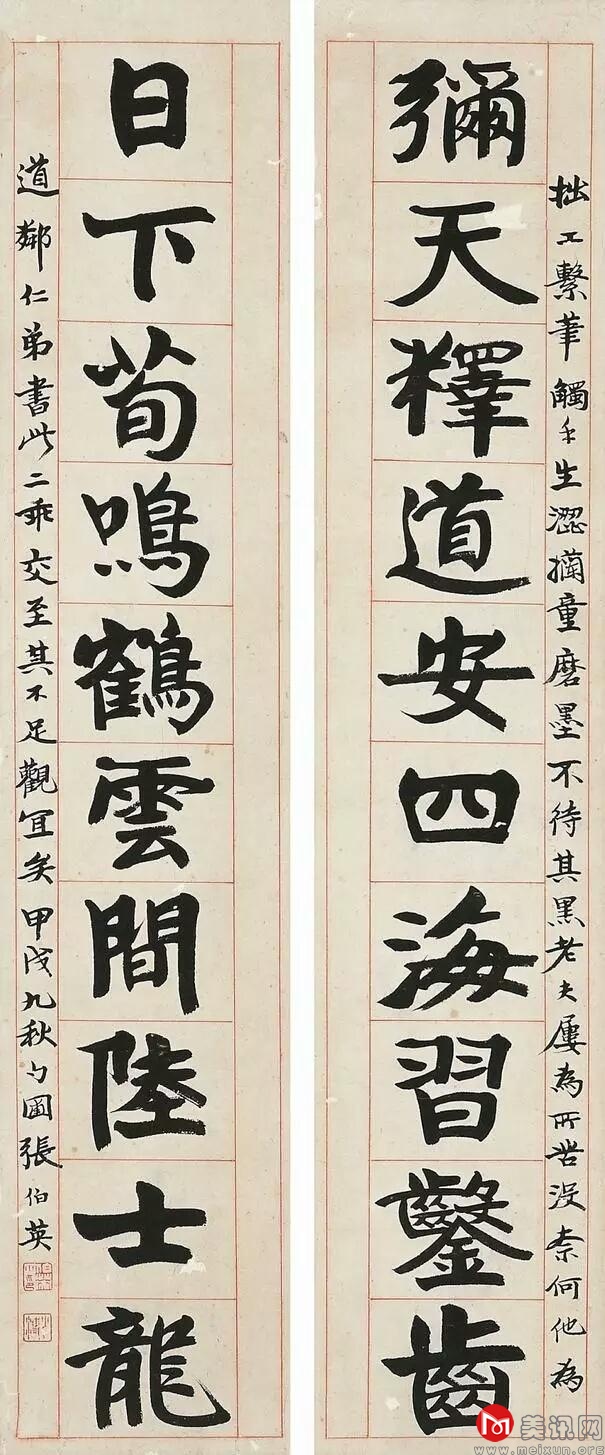 彌天釋道安四海習鑿齒
拙工繫筆觸手生澀獳童磨墨不待其黑老夫屢為所苦沒柰何他為
日下荀鳴鶴雲間陸士龍
道鄰仁弟書此二乖交至其不足觀宜矣甲戌九秋勺圃張伯英
美讯网
www.meixun.org